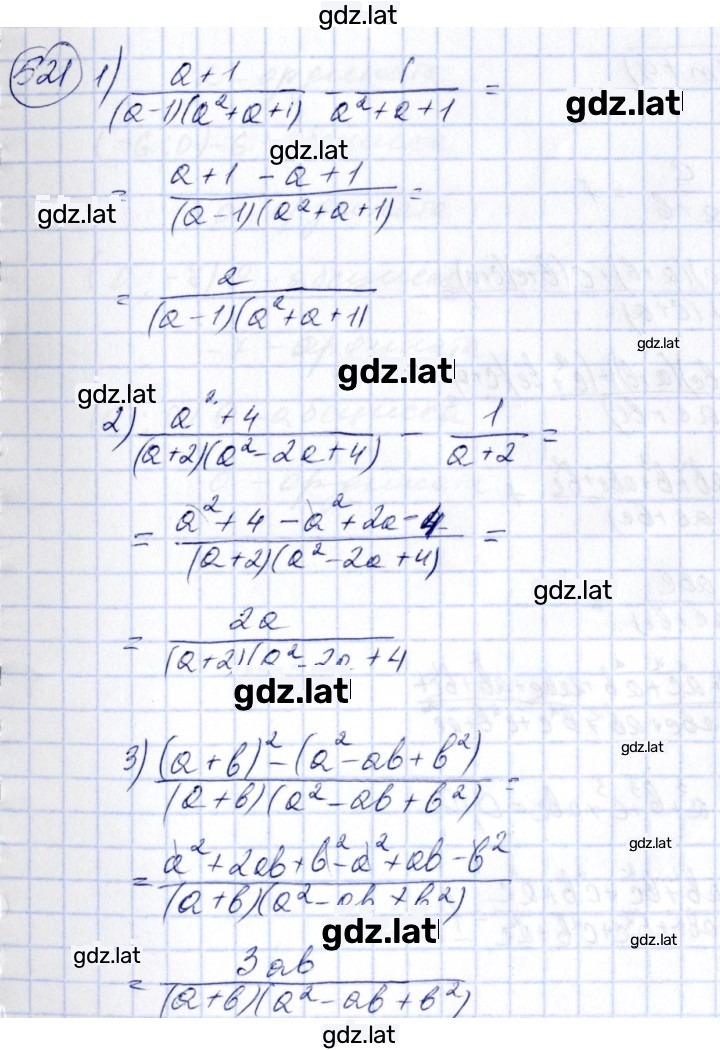 gdz.lat
521 1) a+1 / (a-1)(a²+a+1) - 1 / a²+a+1 =
gdz.lat
gdz.lat
= a+1-a+1 / (a-1)(a²+a+1) =
gdz.lat
= 2 / (a-1)(a²+a+1)
gdz.lat
gdz.lat
gdz.lat
2) a²+4 / (a+2)(a²-2a+4) - 1 / a+2 =
= a²+4-a²+2a-4 / (a+2)(a²-2a+4) =
gdz.lat
= 2a / (a+2)(a²-2a+4
gdz.lat
3) (a+b)²-(a²-ab+b²) / (a+b)(a²-ab+b²) =
gdz.lat
gdz.lat
= a²+2ab+b²-a²+ab-b² / (a+b)(a²-ab+b2)
gdz.lat
gdz.lat
gdz.lat
= 3ab / (a+b)(a²-ab+b²)
gdz.lat